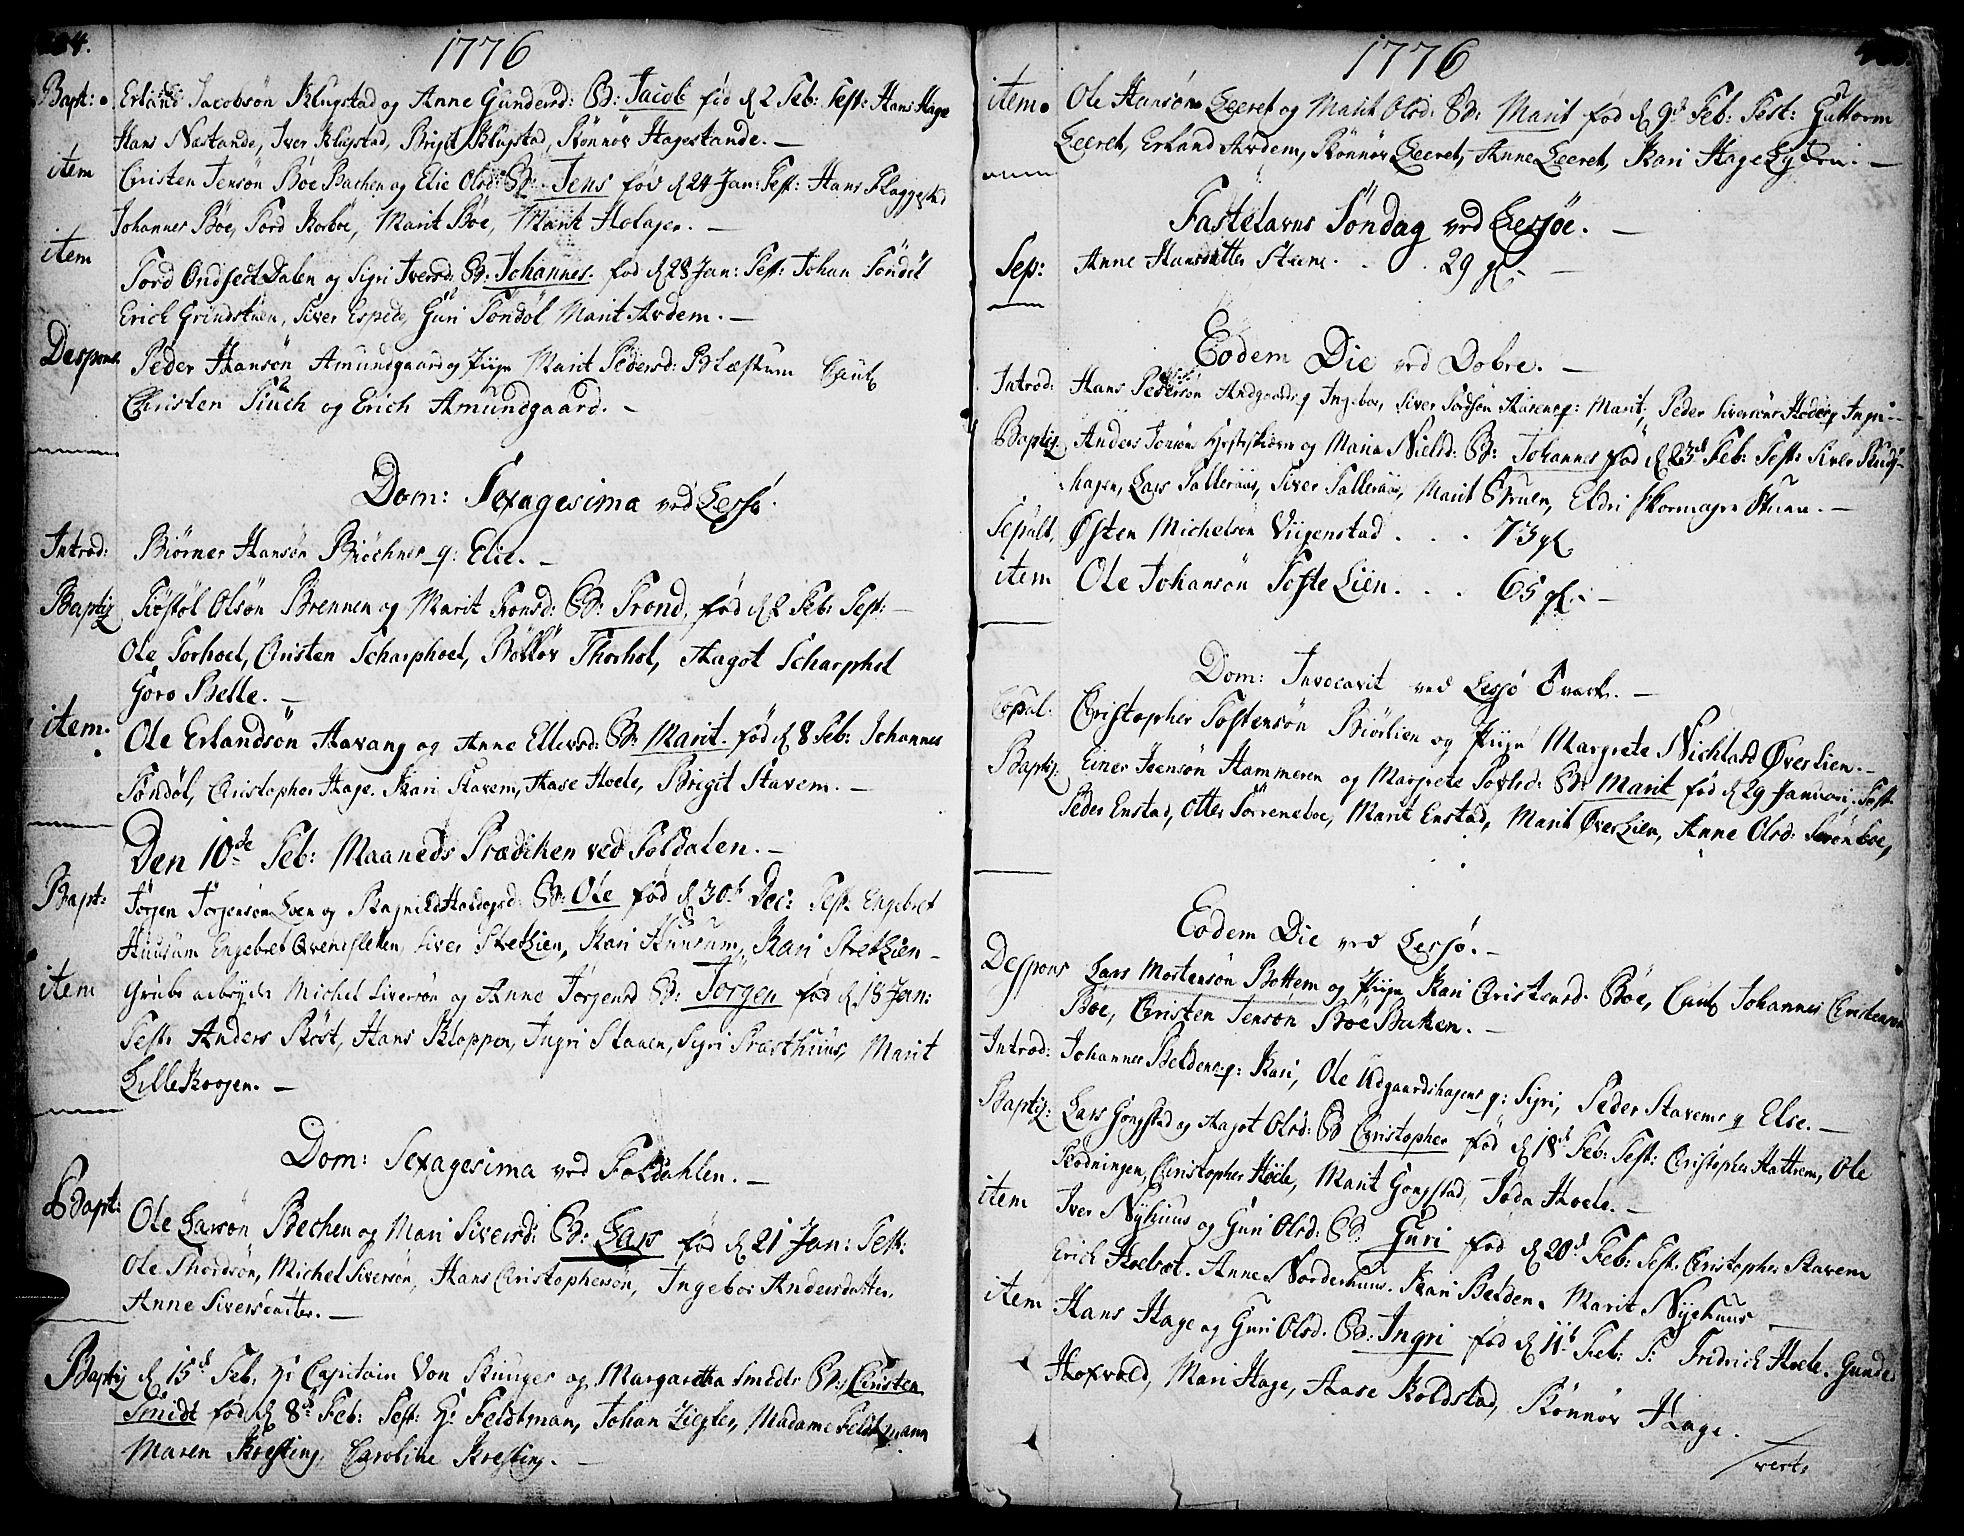 1776
Bapt: Erland Jacobsön Klugstad og Anne Gundersd: B: Jacob fød d 2 Feb: Test: Hans Hage
Hans Nestande, Iver Klugstad, Brigit Klugstad, Rönnov Hagestande. —
item Christen Jensön Böe Bachen og Elie Olsd: B: Jens fød d 24 Jan: Test: Hans Flaggestad
Johannes Böe, Tord Korboe, Marit Böe, Marit Holager. —
item Tord Dalen og Sigri Iversd: B: Johannes. fød d 28 Jan: Test: Johan Töndöl
Erich Grindstuen, Siver Espe, Guri Töndöl Marit Ardem. —
Despons: Peder Hansön Amundgaard og Piige Marit Pedersd: Blæskum Caut
Christen Fiuch og Erich Amundgaard. —
Dom: Sexagesima ved Lessø.
Introd: Biörner Hansön Biöchner q: Elie. —
Baptiz Tröstol Olsön Brennen og Marit Tronsd: B: Trond. fød d 2 Feb: Test: —
Ole Torhoel, Christen Scharphoel, Böllöv Thorhol, Aagot Scharphol
Goro Belle. —
item. Ole Erlandsön Havang og Anne Ellevsd: B: Marit. fød d 8 Feb: Johannes
Töndöl, Christopher Hage. Kari Stavem, Aase Hoele, Brigit Stavem. —
Den 10de Feb: Maaneds Prædiken ved Foldalen. —
Bapt: Jörgen Jörgensön Loen og Ragnild Haldogsd: B: Ole fød d 30t Dec: Test: Engebret
Huusum Engebret Qvernsletten, Siver StreLien, Kari Huusum, Kari StreLien —
item Grube arbeyder Michel Siversön og Anne Jörgensd B: Jorgen fød d 18 Jan:
Test: Anders Röst, Hans Kloppen, Ingri Staaen, Sigri Præsthuus, Marit
LilleKrogen. —
Dom: Sexagesima ved Foldahlen. —
Bapt: Ole Larsön Bechen og Mari Siversd: B: Lars fød d 21 Jan: Test:
Ole Thordsön, Michel Siversön, Hans Christophersön, Ingebor Andersdatter,
Anne Siversdatter. —
Baptiz d 15d Feb. Hr Capitain Von Kruger og Margaretha Smedt B: Christen
Smidt fød d 8d Feb: Test: Hr Feldtman, Johan Ziegler, Madame Feldtmann
Maren Kresting, Caroline Kresting. —
1776
item. Ole Hansön Leeret og Marit Olsd: B: Marit fød d 9d Feb: Test: Guttorm
Leeret, Erland Ardem, Rönnov Leeret, Anne Leeret, Kari Hage —
Fastelavns Söndag ved Lessöe. —
Sep: Anne Hansdatter . . . 29 gl: —
Eodem Die ved Dobre. —
Introd: Hans Pedersön Andgaard q Ingebor, Siver Tordsön q: Marit, Peder Siversöns q Ingri —
Baptiz. Anders Jonsön og Maria Nielsd: B: Johannes fød d 23d Feb: Test: Siver
hagen, Lars Talleraas, Siver Talleraas, Marit Bruen, Eldri Skomager Stuen. —
Sepult. Østen Michelsen Viigenstad . . . 73 gl.
item Ole Johansön TofteLien. . . . 65 gl: —
Dom: Invocavit ved Lessö —
Copul: Christopher Tostensön Biörlien og Piige Margrete Nichlasd ØverLien. —
Baptiz: Einer Joensön Hammeren og Margrete B: Marit fød d 29 Januari. Test:
Peder Enstad, Otter Sörreneboe, Marit Enstad, Marit ØverLien, Anne Olsd:
Eodem Die ved Lessö. —
Despons Lars Mortensön Bottem og Piige Kari Christensd. Böe, Caut Johannes Christensön
Böe, Christen Jensön Böe Bakken. —
Introd: Johannes Belden q: Kari, Ole Udgaardshagens q: Sigri, Peder Stavems q Else. —
Baptiz: Lars Gongstad og Aagot Olsd: B Christopher fød d 18d Feb: Test: Christopher Hattrem, Ole
Rodningen, Christopher Hoele, Marit Gongstad, Joda Hoele. —
item Iver Nyhuus og Guri Olsd: B: Guri fød d 20d Feb: Test: Christopher Stavem
Erich Anne Norderhuus. Kari Belden. Marit Nyehuus —
item Hans Hage og Guri Olsd. B: Ingri fød d 11t Feb: T: Fridrich Hoele. Gunder
Marit Hage, Aase Koldstad, Rönnov Hage. —
verte